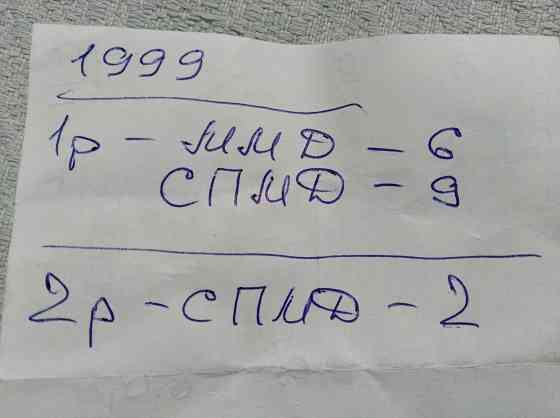 1999
1р - ММД - 6
СПМД - 9
2р - СПМД - 2